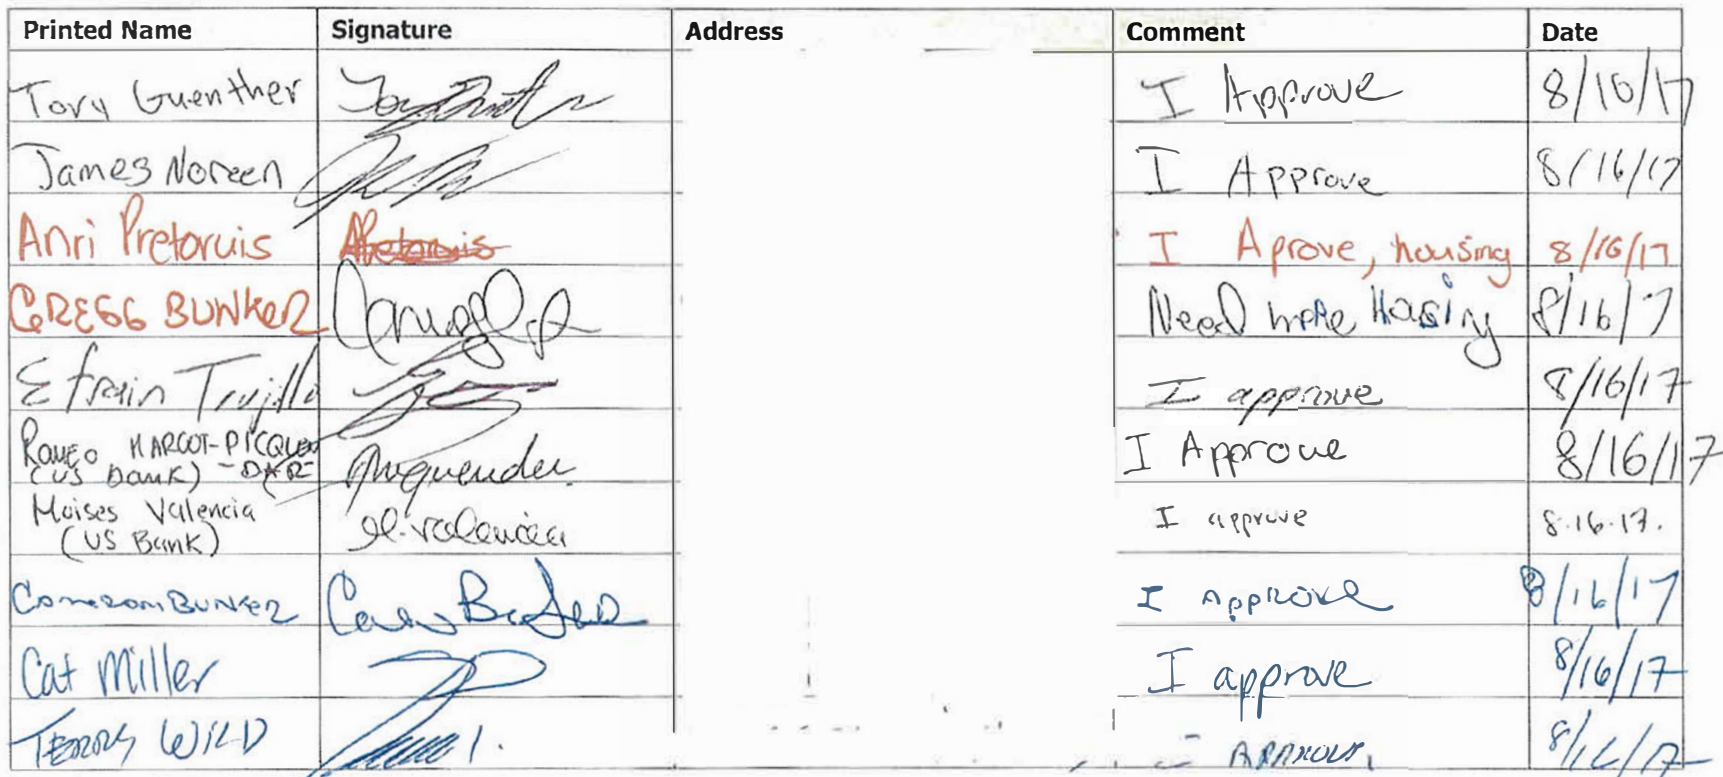 Printed Name Signature Address Comment Date
Tory Guenther I Approve 8/16/17
James Noreen I Approve 8/16/17
Anri Pretoruis Apretoruis I Aprove, housing 8/16/17
GREGG BUNKER Need more Housing 8/16/17
Efrain Trujillo I approve 8/16/17
ROMEO MARCOT-PICQUEN
(US BANK) -DAR- I Approve 8/16/17
Moises Valencia
(US Bank) M. Valencia I approve 8.16.17.
Cameron BUNKER I APPROVE 8/16/17
Cat Miller I approve 8/16/17
TERRY WILD I APPROVE, 8/16/17